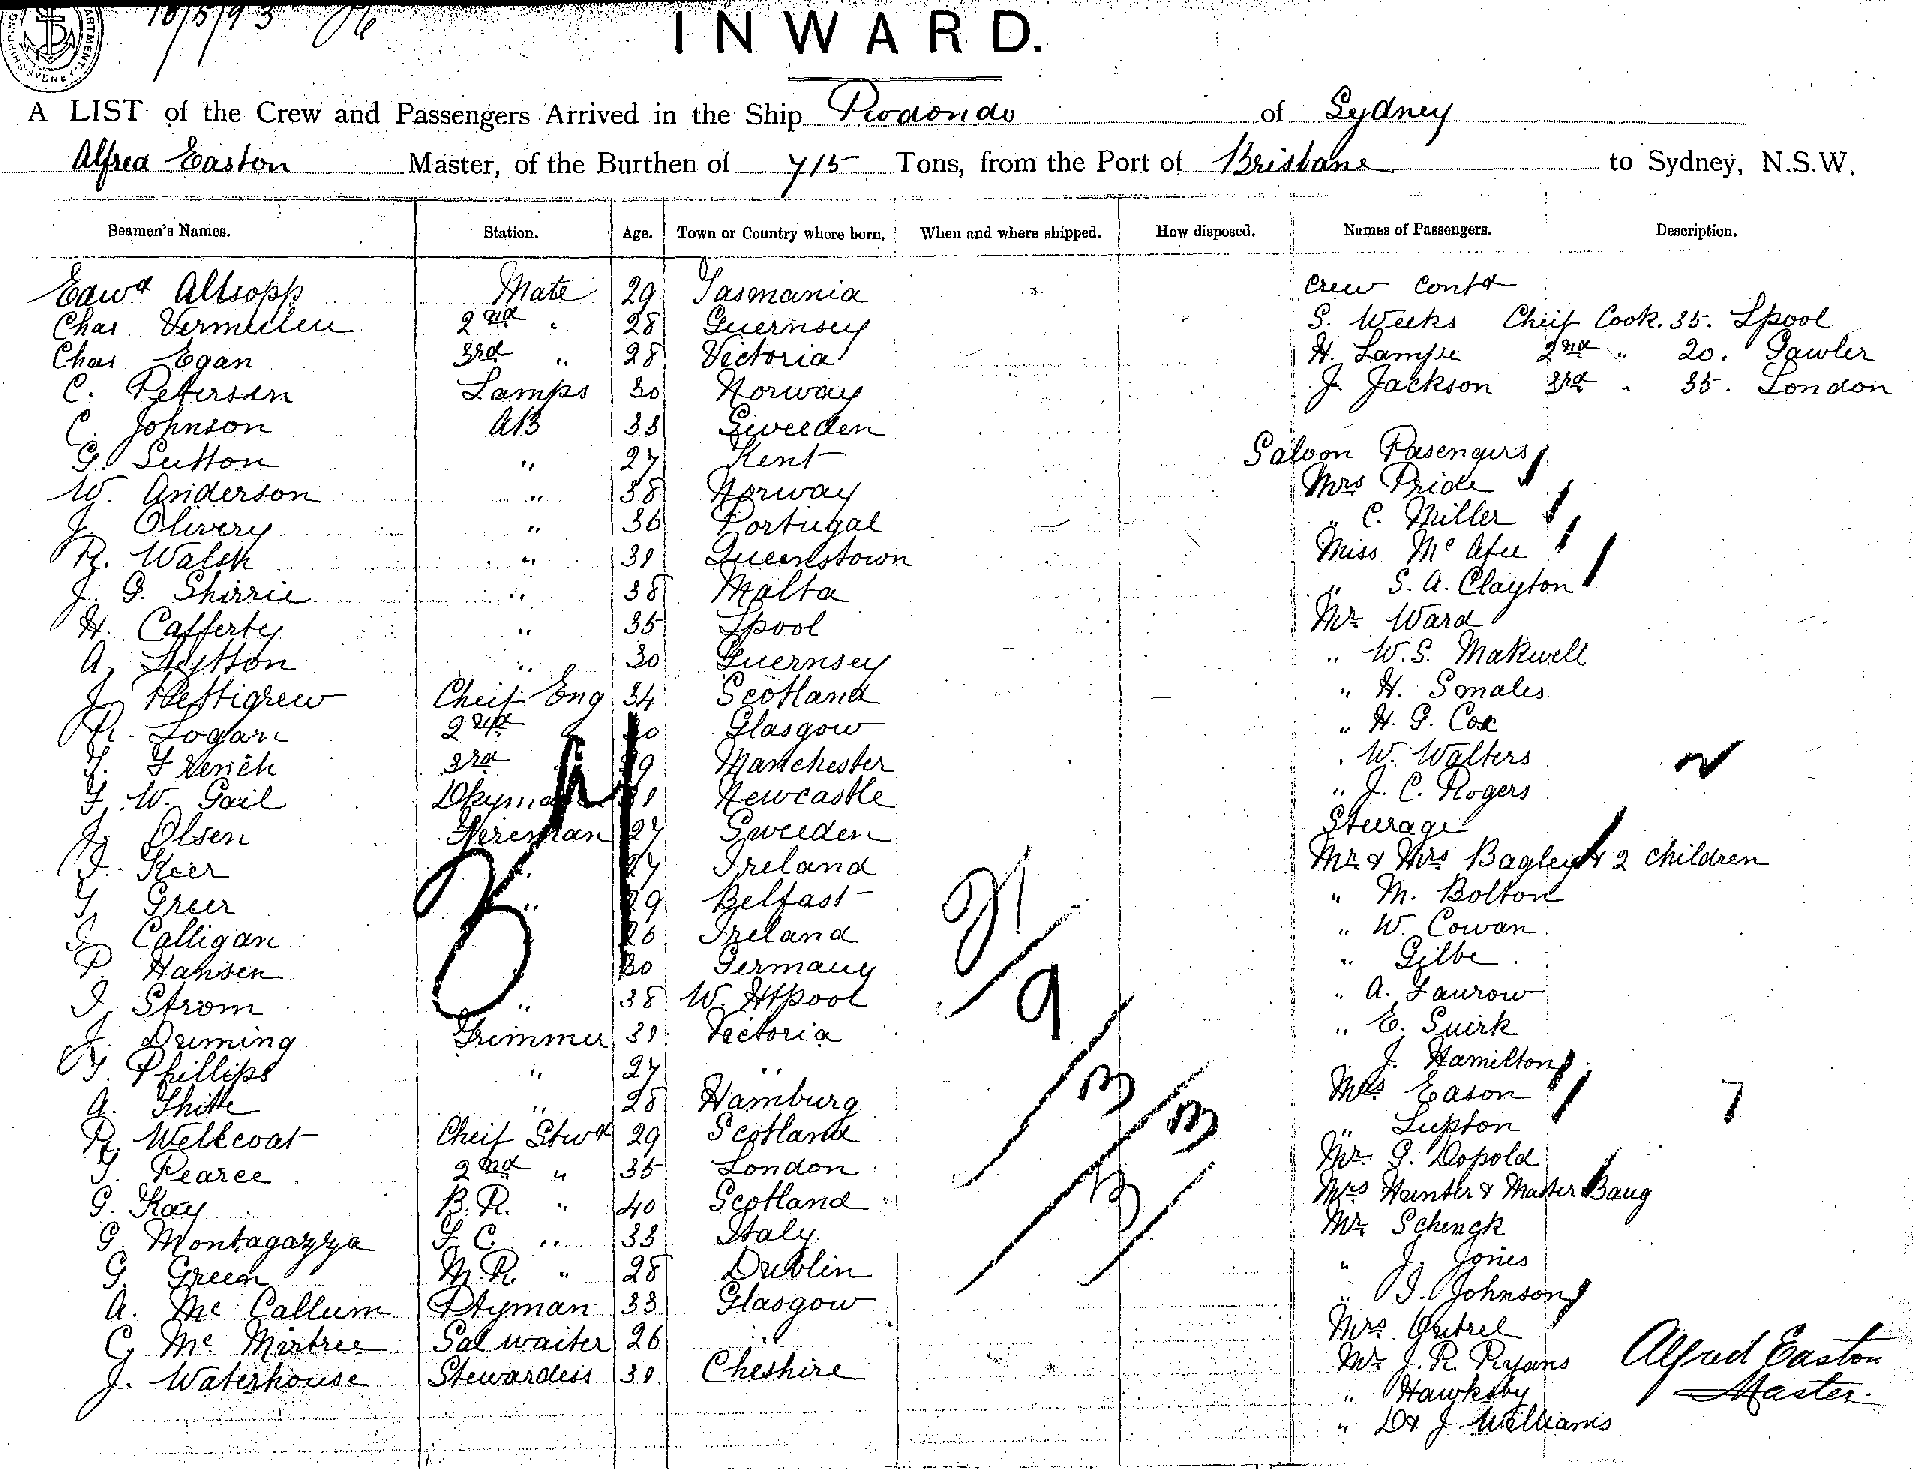 10/5/93
INWARD.
A LIST of the Crew and Passengers Arrived in the Ship Rodondo of Sydney
Alfred Easton Master, of the Burthen of 715 Tons, from the Port of Brisbane to Sydney, N.S.W.
Seamen's Names. Station. Age. Town or Country where born. When and where shipped. How disposed. Names of Passengers. Description.
Edwd Allsopp Mate 29 Tasmania
Chas Vermeulen 2nd " 28 Guernsey
Chas Egan 3rd " 28 Victoria
C. Petersen Lamps 30 Norway
C. Johnson AB 33 Sweeden
G. Sutton " 27 Kent
W. Anderson " 38 Norway
J. Olivery " 36 Portugal
R. Walsh " 31 Queenstown
J. G. Shirrie " 38 Malta
H. Cafferty " 35 Lpool
A. " 30 Guernsey
J. Pettigrew Cheif Eng 34 Scotland
R. Logan 2nd 30 Glasgow
T. French 3rd 29 Manchester
F. W. Gail Dkyman 31 Newcastle
J. Olsen Fireman 27 Sweeden
J. Keer " 27 Ireland
T. Greer " 29 Belfast
J. Calligan 26 Ireland
P. Hansen 30 Germany
J. Strom " 38 W. Htpool
J. Deeming Trimmer 31 Victoria
T. Phillips " 27 "
A. " 28 Hamburg
R. Wellcoat Cheif Stwd 29 Scotland
T. Pearce 2nd " 35 London
G. Kay B.R. " 40 Scotland
G. Montagazza F.C. " 33 Italy
G. Green M.R. " 28 Dublin
A. Mc Callum Ptyman 33 Glasgow
G. Mc Mirtree Sal waiter 26 "
J. Waterhouse Stewardess 31 Cheshire
Crew contd
S. Weeks Cheif Cook. 35. Lpool
H. Lampe 2nd " 20. Gawler
J. Jackson 3rd " 35. London
Saloon Pasengers
Mrs Pride
" C. Miller
Miss Mc Afee
" S. A. Clayton
Mr Ward
" W. S. Makwell
" H. Smales
" H. G. Cox
" W. Walters
" J. C. Rogers
Steerage
Mr & Mrs Bagley & 2 children
" M. Bolton
" W. Cowan
" Gilbe
" A. Laurow
" E. Quirk
J. Hamilton
Mrs Eason
" Lupton
Mr G. Dopold
Mrs Hunter & Master Baug
Mr Schenck
" J. Jones
" J. Johnson
Mrs
Mr J. R. Ryans
" Hawksby
" D & J Williams
21
9
3
3
3
7
Alfred Easton
Master.